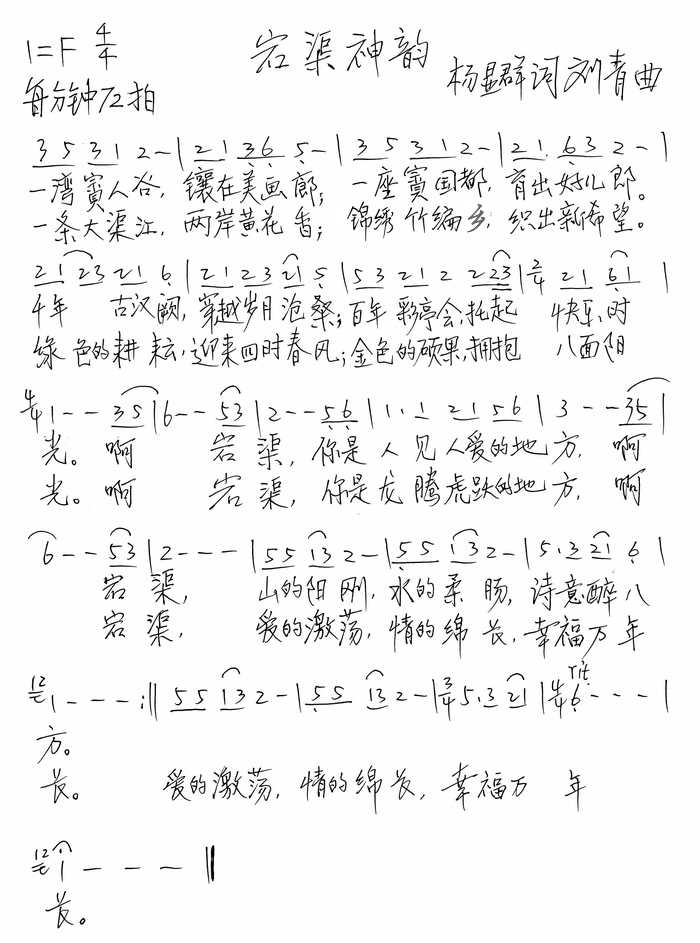 1=F 4/4 宕渠神韵
每分钟72拍 杨显群词 刘青曲
3 5 3 1 2 - | 2 1 3 6 5 - | 3 5 3 1 2 - | 2 1. 6 3 2 - |
一湾賨人谷，镶在美画廊；一座賨国都，育出好儿郎。
一条大渠江，两岸黄花香；锦绣竹编乡，织出新希望。
2 1 2 3 2 1 6 | 2 1 2 3 2 1 5 | 5 3 2 1 2 2 2 3 | 2/4 2 1 6 1 |
千年 古汉阙，穿越岁月沧桑；百年彩亭会，托起 快乐时
绿色的耕耘，迎来四时春风；金色的硕果，拥抱 八面阳
4/4 1 - - 3 5 | 6 - - 5 3 | 2 - - 5 6 | 1. 1 2 1 5 6 | 3 - - 3 5 |
光。啊 宕渠，你是人见人爱的地方，啊
光。啊 宕渠，你是龙腾虎跃的地方，啊
6 - - 5 3 | 2 - - - | 5 5 1 3 2 - | 5 5 1 3 2 - | 5. 3 2 1 6 |
宕渠， 山的阳刚，水的柔肠，诗意醉八
宕渠， 爱的激荡，情的绵长，幸福万年
12 1 - - - :‖ 5 5 1 3 2 - | 5 5 1 3 2 - | 3/4 5. 3 2 1 | 4/4 rit 6 - - - |
方。
长。 爱的激荡，情的绵长，幸福万 年
12 1 - - - ‖
长。